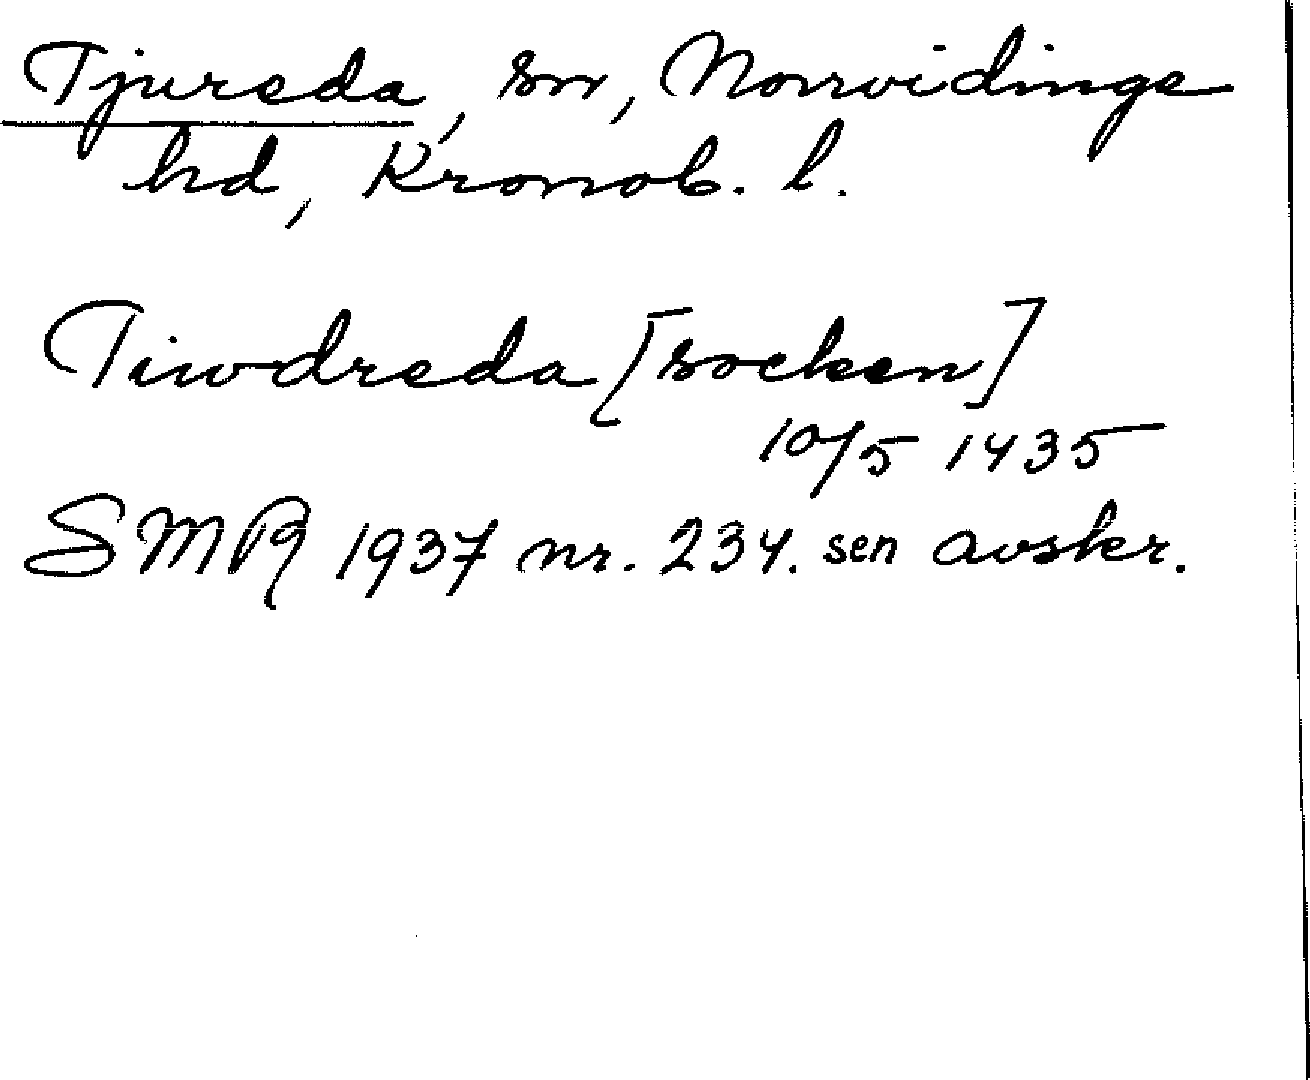 Tjureda, sn, Norrvidinge
hd, Kronob. l.
Tiwdreda [socken]
10/5 1435
SMR 1937 nr. 234. sen avskr.